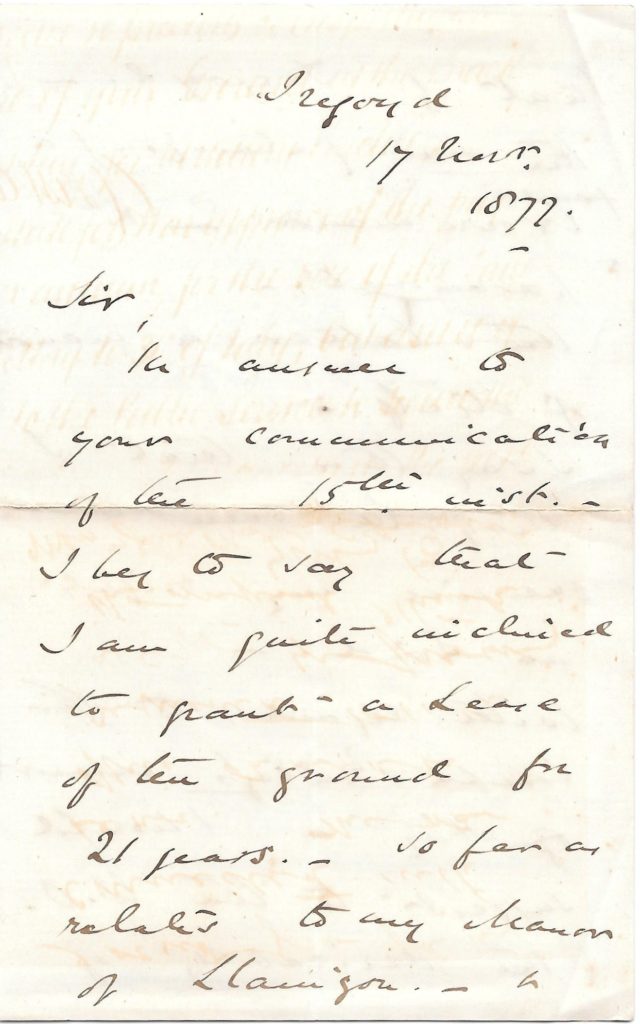 Tregoyd
17 Novr.
1877.
Sir,
In answer to
your communication
of the 15th inst. -
I beg to say that
I am quite inclined
to grant a Lease
of the ground for
21 years. - so far as
relates to my Manor
of Llanigon. -